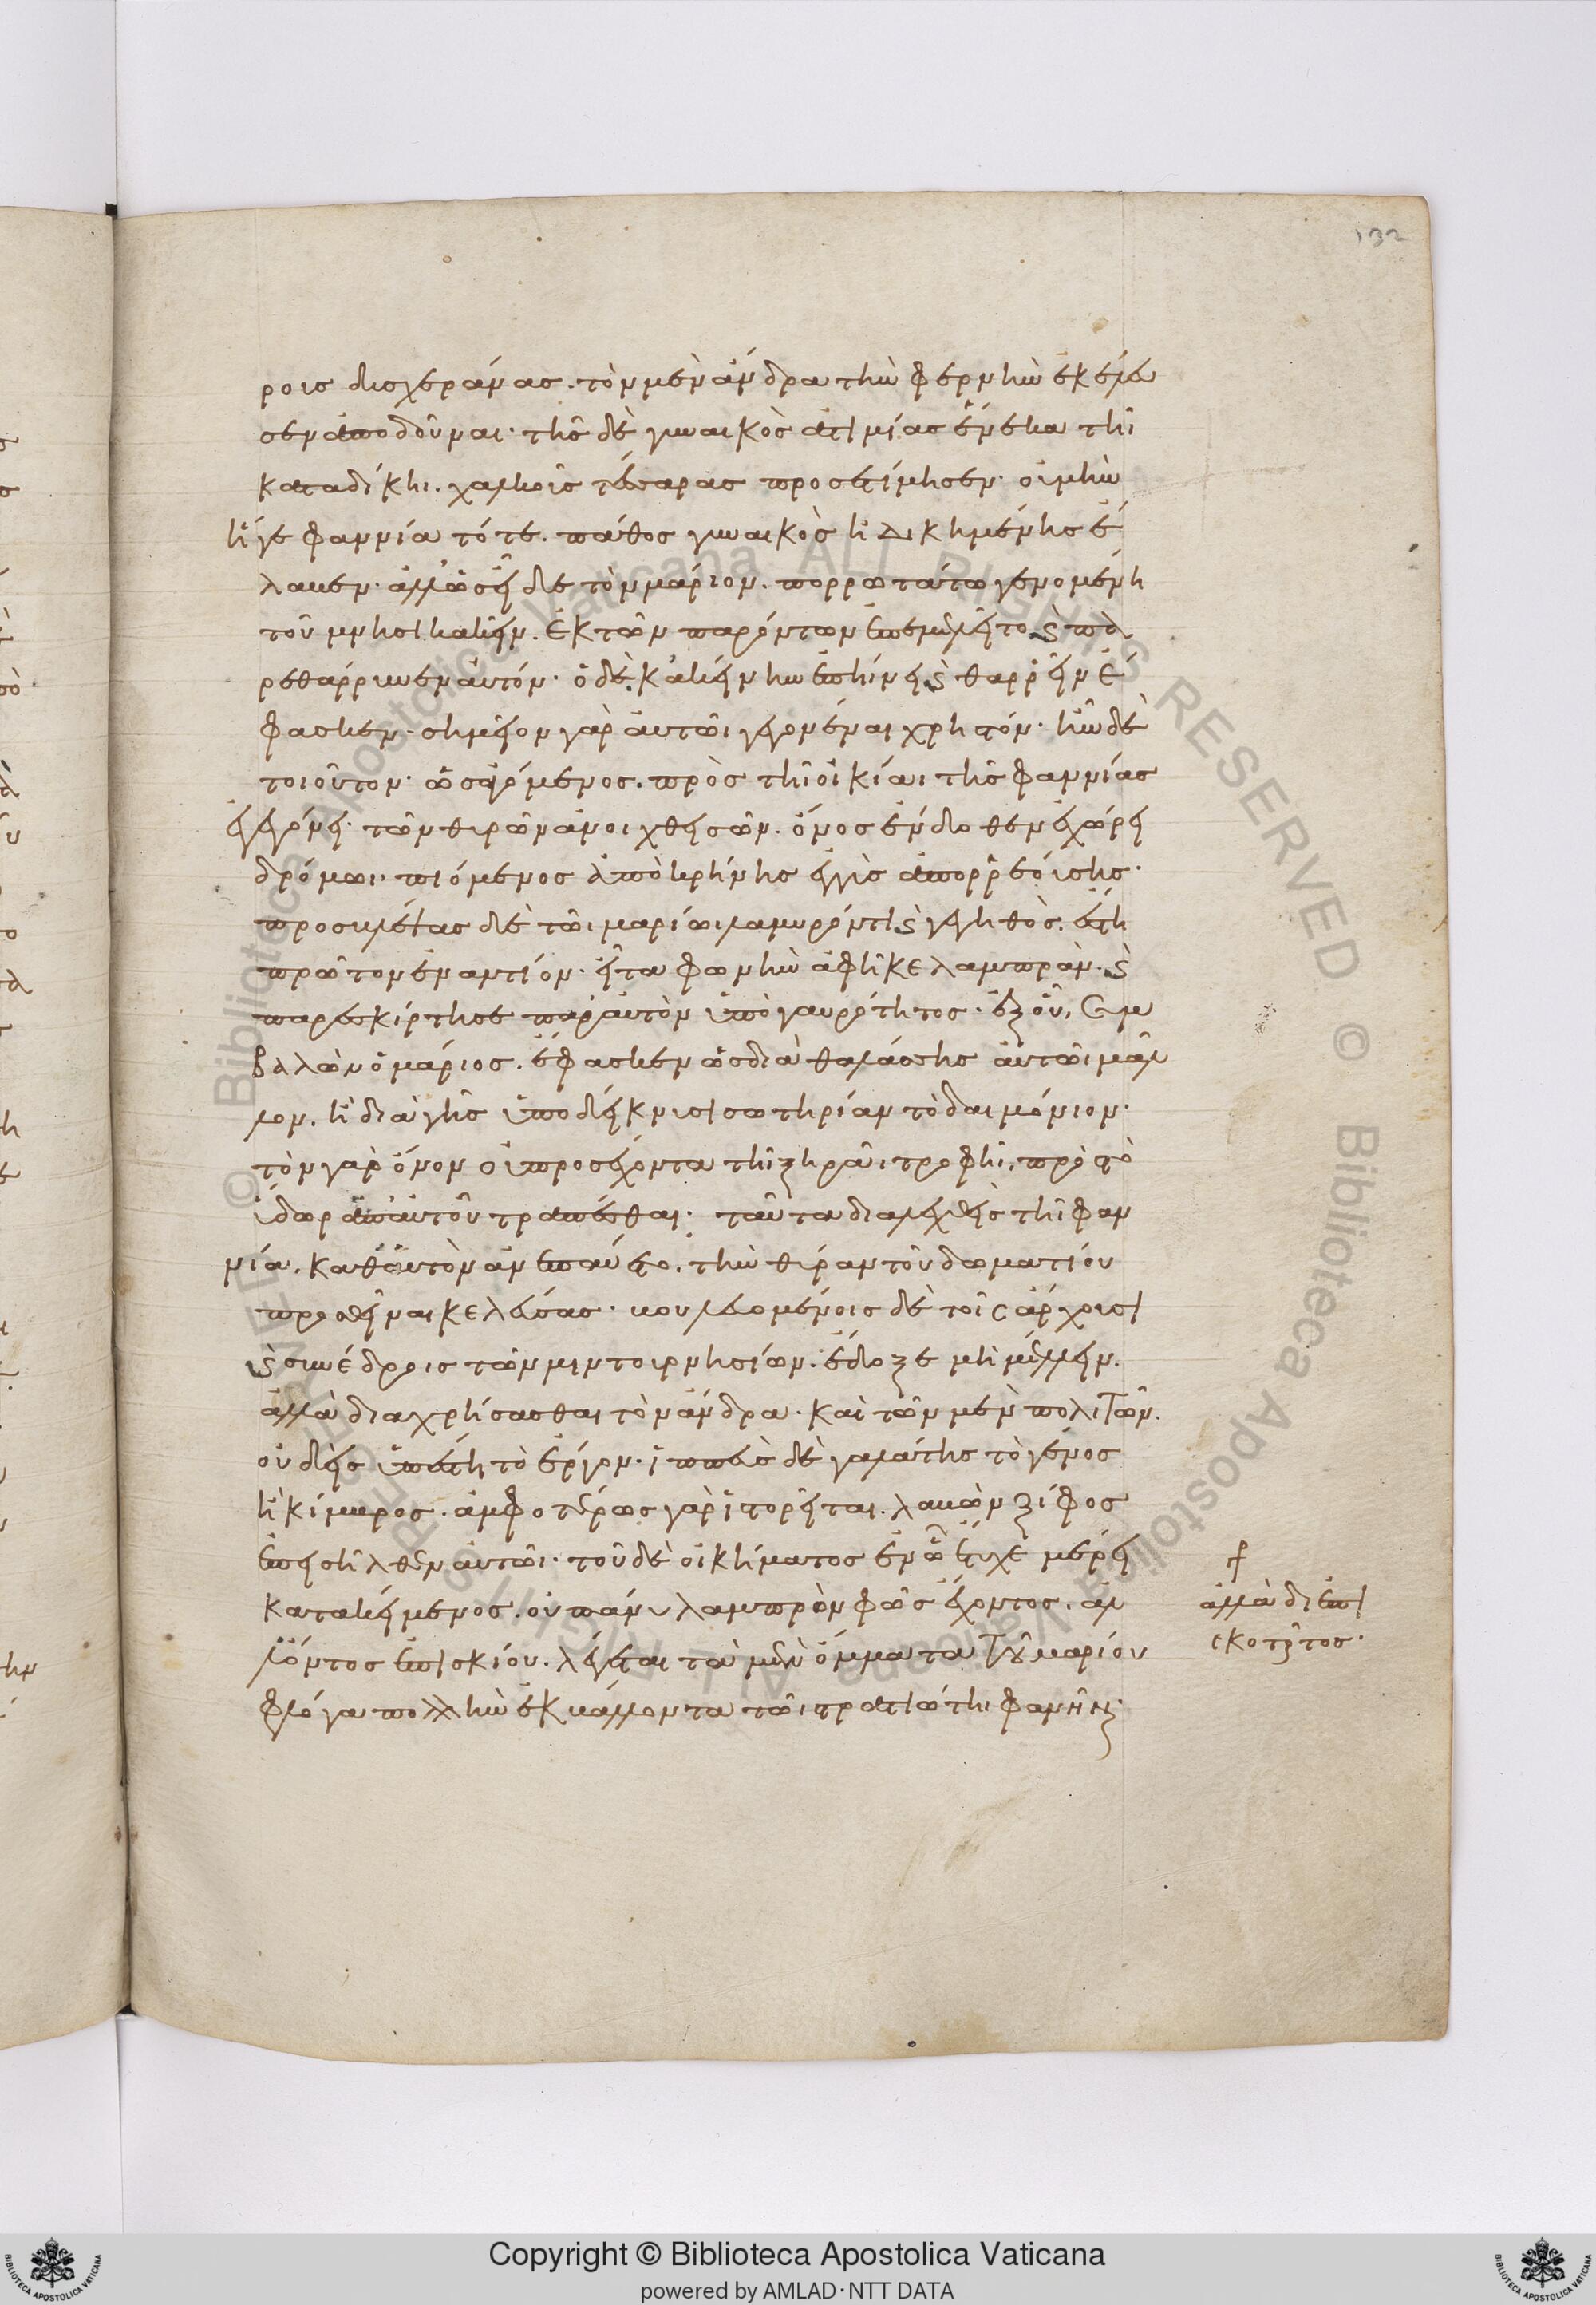 132
ροις δυσχεράνας. τὸν μὲν ἄνδρα τὴν φερνὴν ἐκέλευ
σεν ἀποδοῦναι· τῆς δὲ γυναικὸς ἀτιμίας ἕνεκα τῆι
καταδίκηι. χαλκοῦς τέσσαρας προσετίμησεν· οὐ μὴν
ἥ γε φαννία τότε. πάθος γυναικὸς ἠδικημένης ἔ
λαβεν· ἀλλ' ὡς εἶδε τὸν μάριον. πορρωτάτω γενομένη
τοῦ μνησικακεῖν. ἐκ τῶν παρόντων ἐπεμελεῖτο καὶ πα
ρεθάρρυνεν αὐτόν· ὁ δὲ κἀκείνην ἐπήινει καὶ θαρρεῖν ἔ
φασκεν· σημεῖον γὰρ αὐτῶι γεγονέναι χρηστόν· ἦν δὲ
τοιοῦτον· ὡς ἀγόμενος. πρὸς τῆι οἰκίαι τῆς φαννίας
ἐγεγόνει· τῶν θυρῶν ἀνοιχθεισῶν. ὄνος ἔνδοθεν ἐχώρει
δρόμωι. πιόμενος ἀπὸ κρήνης ἐγγὺς ἀπορρεούσης·
προσβλέψας δὲ τῶι μαρίωι λαμυρόν τι καὶ γεγηθὸς. ἔστη
πρῶτον ἐναντίον· εἶτα φωνὴν ἀφῆκε λαμπρὰν. καὶ
παρεσκίρτησε παρ' αὐτὸν ὑπὸ γαυρότητος· ἐξ οὗ, συμ
βαλὼν ὁ μάριος. ἔφασκεν ὡς διὰ θαλάσσης αὐτῶι μᾶλ
λον. ἢ διὰ γῆς ὑποδείκνυσι σωτηρίαν τὸ δαιμόνιον·
τὸν γὰρ ὄνον οὐ προσέχοντα τῆι ξηρᾶι τροφῆι, πρὸς τὸ
ὕδωρ ἀπ' αὐτοῦ τραπέσθαι· ταῦτα διαλεχθεὶς τῆι φαν
νία. καθ' αὑτὸν ἀνεπαύετο. τὴν θύραν τοῦ δωματίου
προσθεῖναι κελεύσας· βουλευομένοις δὲ τοῖς ἄρχουσι
καὶ συνέδροις τῶν μιντουρνησίων. ἔδοξε μὴ μέλλειν.
ἀλλὰ διαχρήσασθαι τὸν ἄνδρα. καὶ τῶν μὲν πολιτῶν.
οὐδεὶς ὑπέστη τὸ ἔργον· ἱππεὺς δὲ γαλάτης τὸ γένος
ἢ κίμβρος. ἀμφοτέρως γὰρ ἱστορεῖται. λαβὼν ξίφος
ἐπεισῆλθεν αὐτῶι· τοῦ δὲ οἰκήματος ἐν ὧ ἔτυχε μέρει
κατακείμενος. οὐ πάνυ λαμπρὸν φῶς ἔχοντος. ἀλ
λ' ὄντος ἐπισκίου. λέγεται τὰ μὲν ὄμματα τοῦ μαρίου
φλόγα πολλὴν ἐκβάλλοντα τῶι στρατιώτηι φανῆναι
ἀλλὰ δι ἐπι
σκοτοῦντος·
Copyright © Biblioteca Apostolica Vaticana
powered by AMLAD·NTT DATA